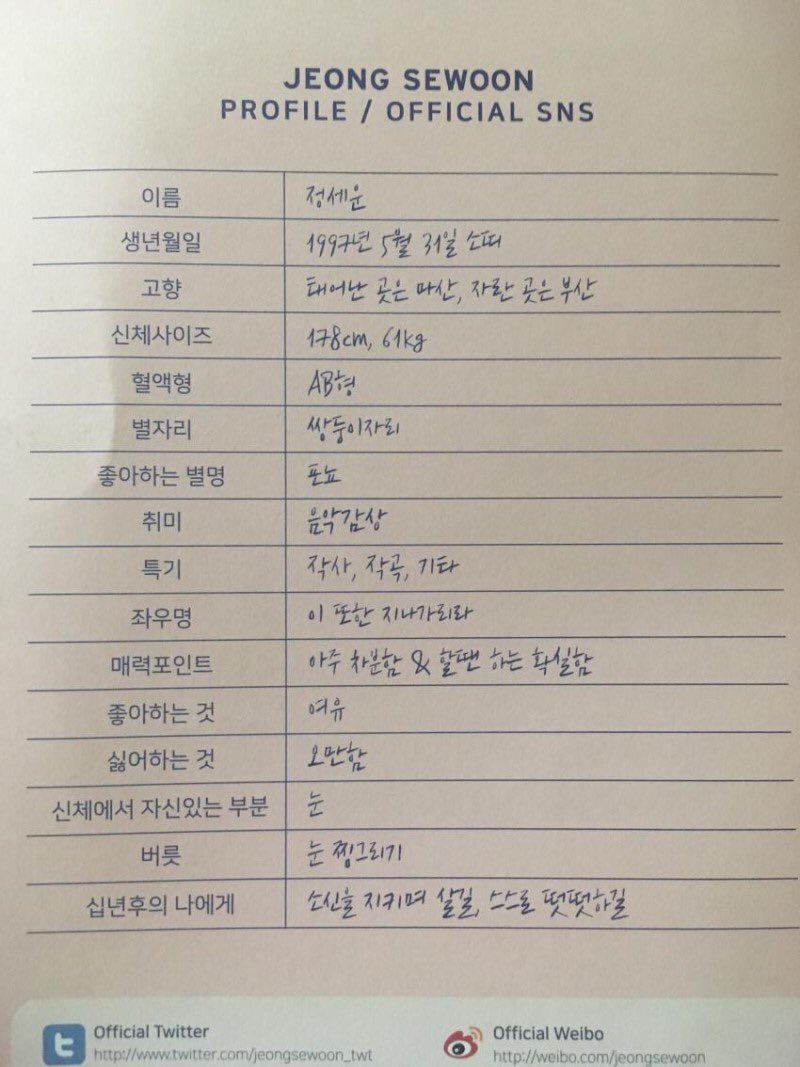 JEONG SEWOON
PROFILE / OFFICIAL SNS
이름 정세운
생년월일 1997년 5월 31일 소띠
고향 태어난 곳은 마산, 자란 곳은 부산
신체사이즈 178cm, 61kg
혈액형 AB형
별자리 쌍둥이자리
좋아하는 별명 포뇨
취미 음악감상
특기 작사, 작곡, 기타
좌우명 이 또한 지나가리라
매력포인트 아주 차분함 & 할땐 하는 확실함
좋아하는 것 여유
싫어하는 것 오만함
신체에서 자신있는 부분 눈
버릇 눈 찡그리기
십년후의 나에게 소신을 지키며 살길, 스스로 떳떳하길
Official Twitter
http://www.twitter.com/jeongsewoon_twt
Official Weibo
http://weibo.com/jeongsewoon